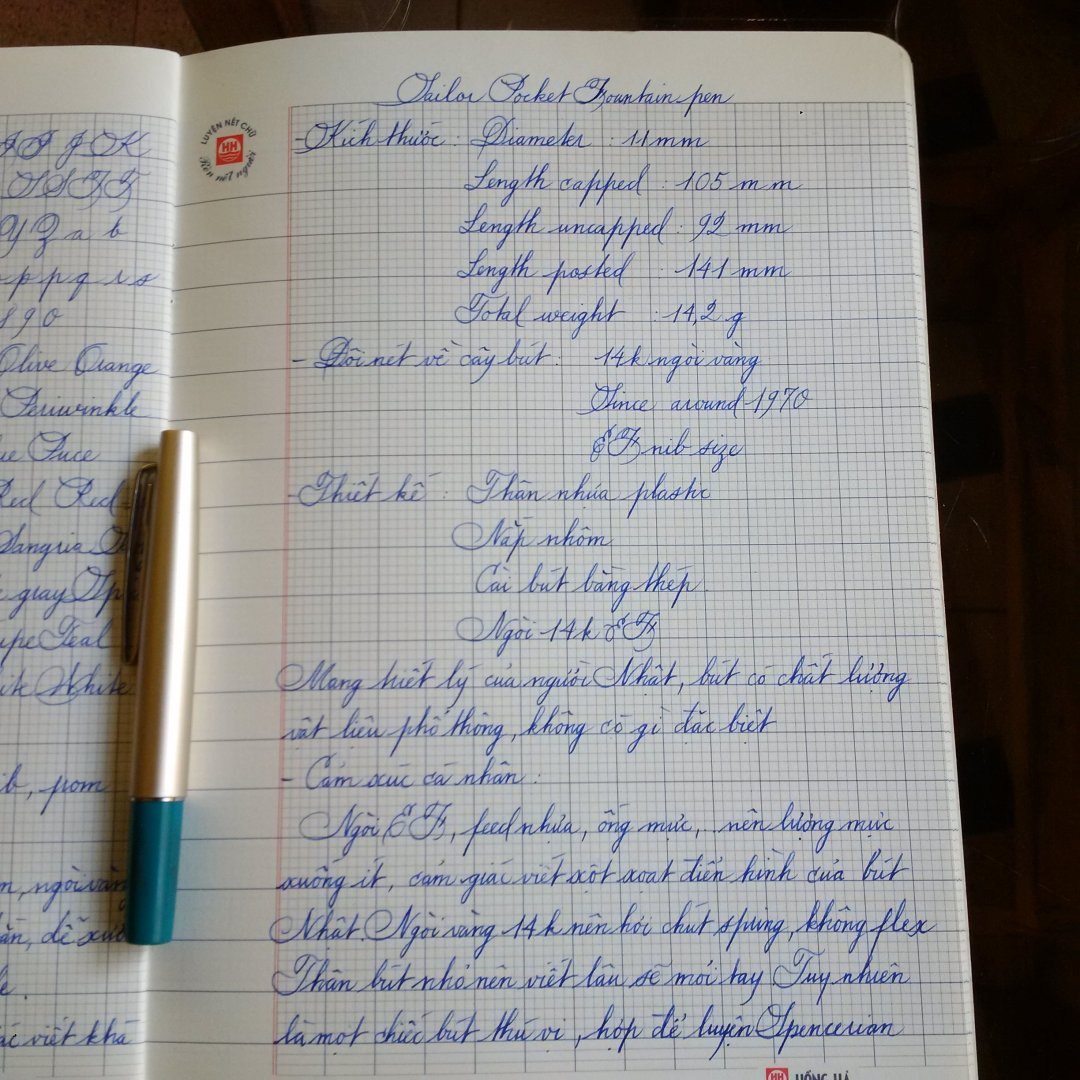 Sailor Pocket Fountain pen
LUYỆN NẾT CHỮ
HH
Rèn nết người
- Kích thước : Diameter : 11 mm
Length capped : 105 mm
Length uncapped : 92 mm
Length posted : 141 mm
Total weight : 14,2 g
- Đôi nét về cây bút : 14k ngòi vàng
Since around 1970
EF nib size
- Thiết kế : Thân nhựa plastic
Nắp nhôm
Cài bút bằng thép
Ngòi 14k EF
Mang triết lý của người Nhật, bút có chất lượng
vật liệu phổ thông, không có gì đặc biệt
- Cảm xúc cá nhân :
Ngòi EF, feed nhựa, ống mực,.. nên lượng mực
xuống ít, cảm giác viết sột soạt điển hình của bút
Nhật. Ngòi vàng 14k nên hơi chút spring, không flex
Thân bút nhỏ nên viết lâu sẽ mỏi tay. Tuy nhiên
là một chiếc bút thú vị, hợp để luyện Spencerian
HH HỒNG HÀ
J K
Y Z a b
p p q r s
8 9 0
Olive Orange
Periwinkle
Puce
Red Red
Sangria
gray
Teal
White
b, pom
ngòi vàng
dễ
viết khá